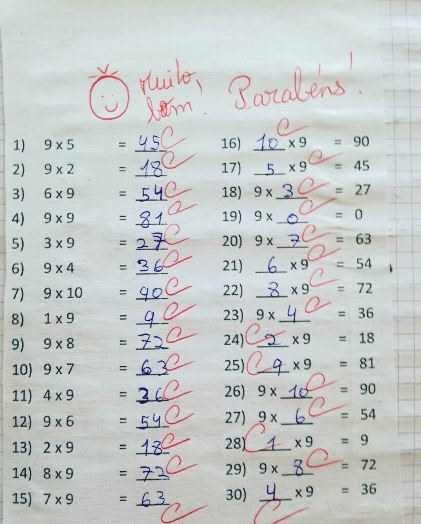 Muito bom! Parabéns!
1) 9 x 5 = 45 C 16) 10 x 9 = 90 C
2) 9 x 2 = 18 C 17) 5 x 9 = 45 C
3) 6 x 9 = 54 C 18) 9 x 3 = 27 C
4) 9 x 9 = 81 C 19) 9 x 0 = 0 C
5) 3 x 9 = 27 C 20) 9 x 7 = 63 C
6) 9 x 4 = 36 C 21) 6 x 9 = 54 C
7) 9 x 10 = 90 C 22) 8 x 9 = 72 C
8) 1 x 9 = 9 C 23) 9 x 4 = 36 C
9) 9 x 8 = 72 C 24) 2 x 9 = 18 C
10) 9 x 7 = 63 C 25) 9 x 9 = 81 C
11) 4 x 9 = 36 C 26) 9 x 10 = 90 C
12) 9 x 6 = 54 C 27) 9 x 6 = 54 C
13) 2 x 9 = 18 C 28) 1 x 9 = 9 C
14) 8 x 9 = 72 C 29) 9 x 8 = 72 C
15) 7 x 9 = 63 C 30) 4 x 9 = 36 C